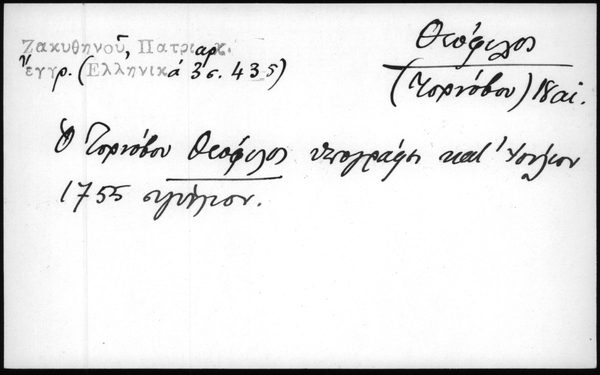 Ζακυθηνοῦ, Πατριαρχ.
ἔγγρ. (Ἑλληνικά 3 σ. 435)
Θεόφιλος
(Τορνόβου) 18 αἰ.
Ὁ Τορνόβου Θεόφιλος ὑπογράφει κατ' Ἰούλιον
1755 σιγίλλιον.